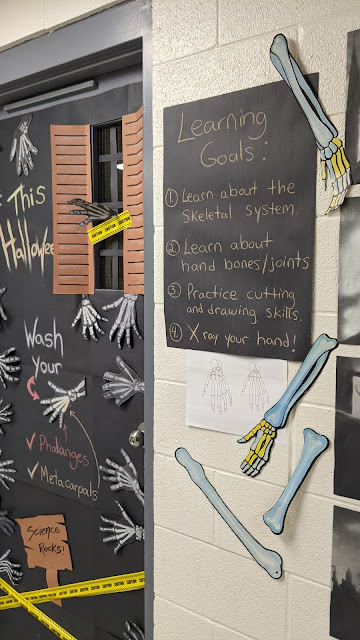 This
Hallowe
Wash
your
✓ Phalanges
✓ Metacarpals
Science
Rocks!
CAUTION CAUTION
Learning
Goals:
① Learn about the
skeletal system.
② Learn about
hand bones/joints
③ Practice cutting
and drawing skills.
④ X ray your hand!